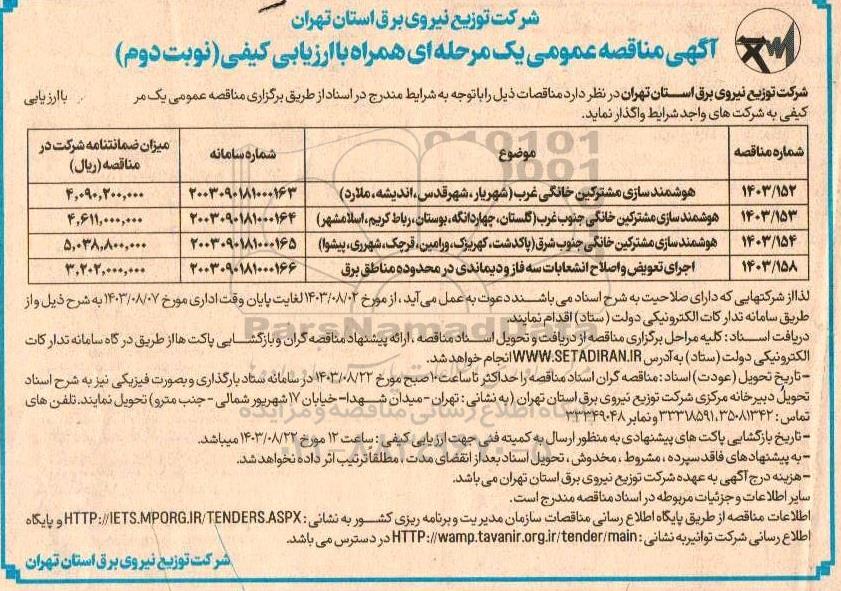 شرکت توزیع نیروی برق استان تهران
آگهی مناقصه عمومی یک مرحله ای همراه با ارزیابی کیفی (نوبت دوم)
شرکت توزیع نیروی برق استان تهران در نظر دارد مناقصات ذیل را با توجه به شرایط مندرج در اسناد از طریق برگزاری مناقصه عمومی یک مر با ارزیابی
کیفی به شرکت های واجد شرایط واگذار نماید.
شماره مناقصه موضوع شماره سامانه میزان ضمانتنامه شرکت در مناقصه (ریال)
۱۴۰۳/۱۵۲ هوشمند سازی مشترکین خانگی غرب (شهریار، شهرقدس، اندیشه، ملارد) ۲۰۰۳۰۹۰۱۸۱۰۰۰۱۶۳ ۴,۰۹۰,۲۰۰,۰۰۰
۱۴۰۳/۱۵۳ هوشمند سازی مشترکین خانگی جنوب غرب (گلستان، چهاردانگه، بوستان، رباط کریم، اسلامشهر) ۲۰۰۳۰۹۰۱۸۱۰۰۰۱۶۴ ۴,۶۱۱,۰۰۰,۰۰۰
۱۴۰۳/۱۵۴ هوشمند سازی مشترکین خانگی جنوب شرق (پاکدشت، کهریزک، ورامین، قرچک، شهرری، پیشوا) ۲۰۰۳۰۹۰۱۸۱۰۰۰۱۶۵ ۵,۰۳۸,۸۰۰,۰۰۰
۱۴۰۳/۱۵۸ اجرای تعویض و اصلاح انشعابات سه فاز و دیماندی در محدوده مناطق برق ۲۰۰۳۰۹۰۱۸۱۰۰۰۱۶۶ ۳,۲۰۲,۰۰۰,۰۰۰
لذا از شرکتهایی که دارای صلاحیت به شرح اسناد می باشند دعوت به عمل می آید، از مورخ ۱۴۰۳/۰۸/۰۲ لغایت پایان وقت اداری مورخ ۱۴۰۳/۰۸/۰۷ به شرح ذیل و از
طریق سامانه تدارکات الکترونیکی دولت (ستاد) اقدام نمایند.
دریافت اسناد: کلیه مراحل برگزاری مناقصه از دریافت و تحویل اسناد مناقصه، ارائه پیشنهاد مناقصه گران و بازگشایی پاکت ها از طریق درگاه سامانه تدارکات
الکترونیکی دولت (ستاد) به آدرس WWW.SETADIRAN.IR انجام خواهد شد.
- تاریخ تحویل (عودت) اسناد: مناقصه گران اسناد مناقصه را حداکثر تا ساعت ۱۰ صبح مورخ ۱۴۰۳/۰۸/۲۲ در سامانه ستاد بارگذاری و بصورت فیزیکی نیز به شرح اسناد
تحویل دبیرخانه مرکزی شرکت توزیع نیروی برق استان تهران (به نشانی: تهران - میدان شهدا - خیابان ۱۷ شهریور شمالی - جنب مترو) تحویل نمایند. تلفن های
تماس: ۳۵۰۸۱۳۴۲، ۳۳۳۱۸۵۹۱ و نمابر ۳۳۳۴۹۰۴۸
- تاریخ بازگشایی پاکت های پیشنهادی به منظور ارسال به کمیته فنی جهت ارزیابی کیفی: ساعت ۱۲ مورخ ۱۴۰۳/۰۸/۲۲ میباشد.
- به پیشنهادهای فاقد سپرده، مشروط، مخدوش، تحویل اسناد بعد از انقضای مدت، مطلقا ترتیب اثر داده نخواهد شد.
- هزینه درج آگهی به عهده شرکت توزیع نیروی برق استان تهران می باشد.
سایر اطلاعات و جزئیات مربوطه در اسناد مناقصه مندرج است.
اطلاعات مناقصه از طریق پایگاه اطلاع رسانی مناقصات سازمان مدیریت و برنامه ریزی کشور به نشانی: HTTP://IETS.MPORG.IR/TENDERS.ASPX و پایگاه
اطلاع رسانی شرکت توانیر به نشانی: HTTP://wamp.tavanir.org.ir/tender/main در دسترس می باشد.
شرکت توزیع نیروی برق استان تهران
ParsNamadData
پایگاه اطلاع رسانی مناقصه و مزایده